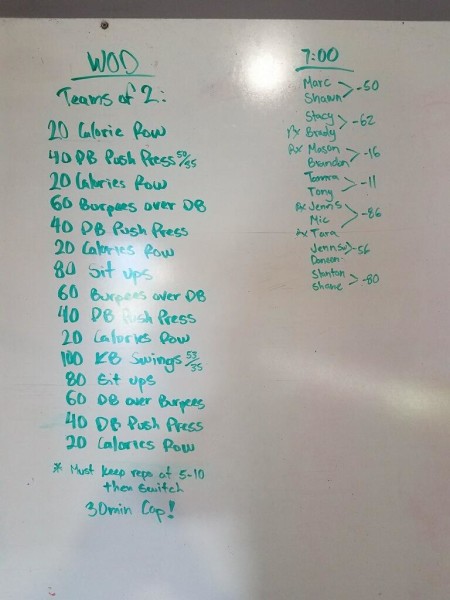 WOD
Teams of 2:
20 Calorie Row
40 DB Push Press 50/35
20 Calories Row
60 Burpees over DB
40 DB Push Press
20 Calories Row
80 Sit ups
60 Burpees over DB
40 DB Push Press
20 Calories Row
100 KB Swings 53/35
80 Sit ups
60 DB over Burpees
40 DB Push Press
20 Calories Row
* Must keep reps at 5-10
then switch
30min Cap!
7:00
Marc
Shawn > -50
Stacy
Rx Brady > -62
Rx Mason
Brandon > -16
Tony > -11
Rx Jenn S
Mic > -86
Rx Tara
-56
Stanton
Shane > -80